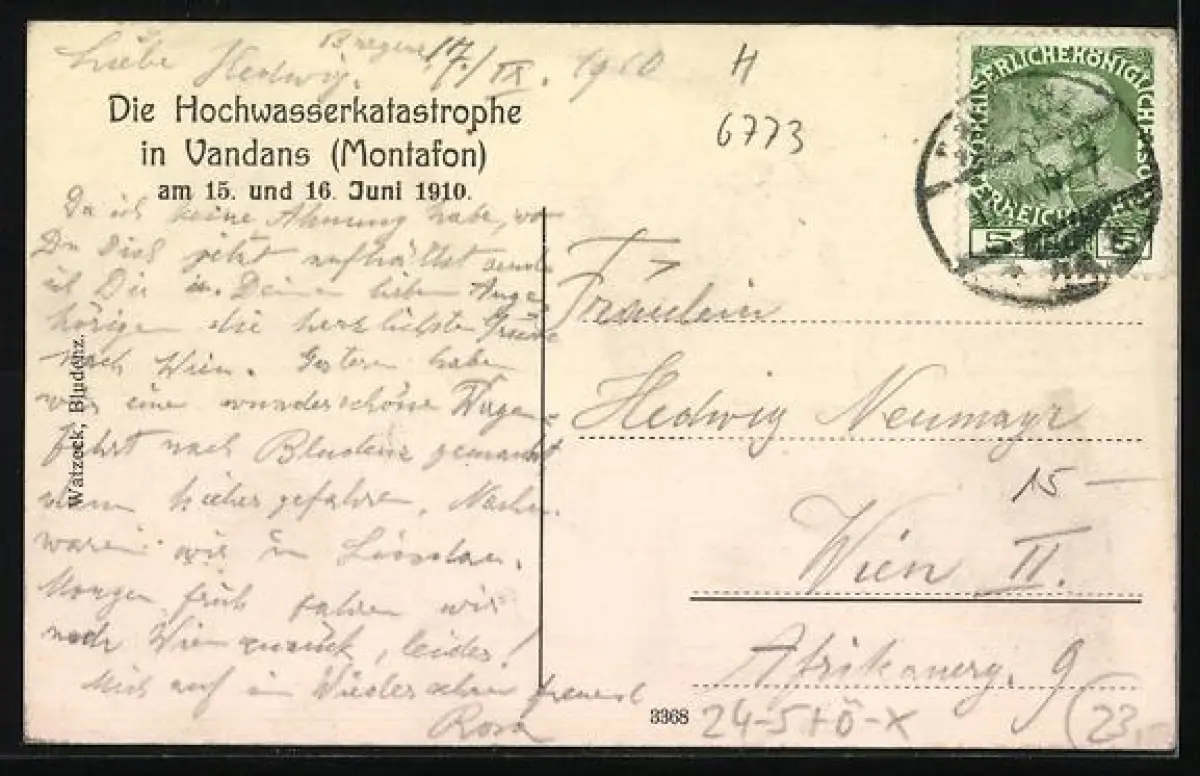 Bregenz 17./IX. 1910
Liebe Hedwig,
Die Hochwasserkatastrophe
in Vandans (Montafon)
am 15. und 16. Juni 1910.
Da ich keine Ahnung habe, wo
Du Dich jetzt aufhältst sende
ich Dir u. Deinen lieben Ange-
hörigen die herzlichsten Grüße
nach Wien. Gestern haben
wir eine wunderschöne Wagen-
fahrt nach Bludenz gemacht
dann hieher gefahren, Nachm.
waren wir in
Morgen früh fahren wir
nach Wien zurück, leider!
Mich auf ein Wiedersehen freuend
Rosa
Watzeck, Bludenz.
H
6773
KAISERLICHEKÖNIGLICHE
5 5
Fräulein
Hedwig Neumayr
15 —
Wien II.
Afrikanerg. 9
3368
24-5+Ö-X
(23,-